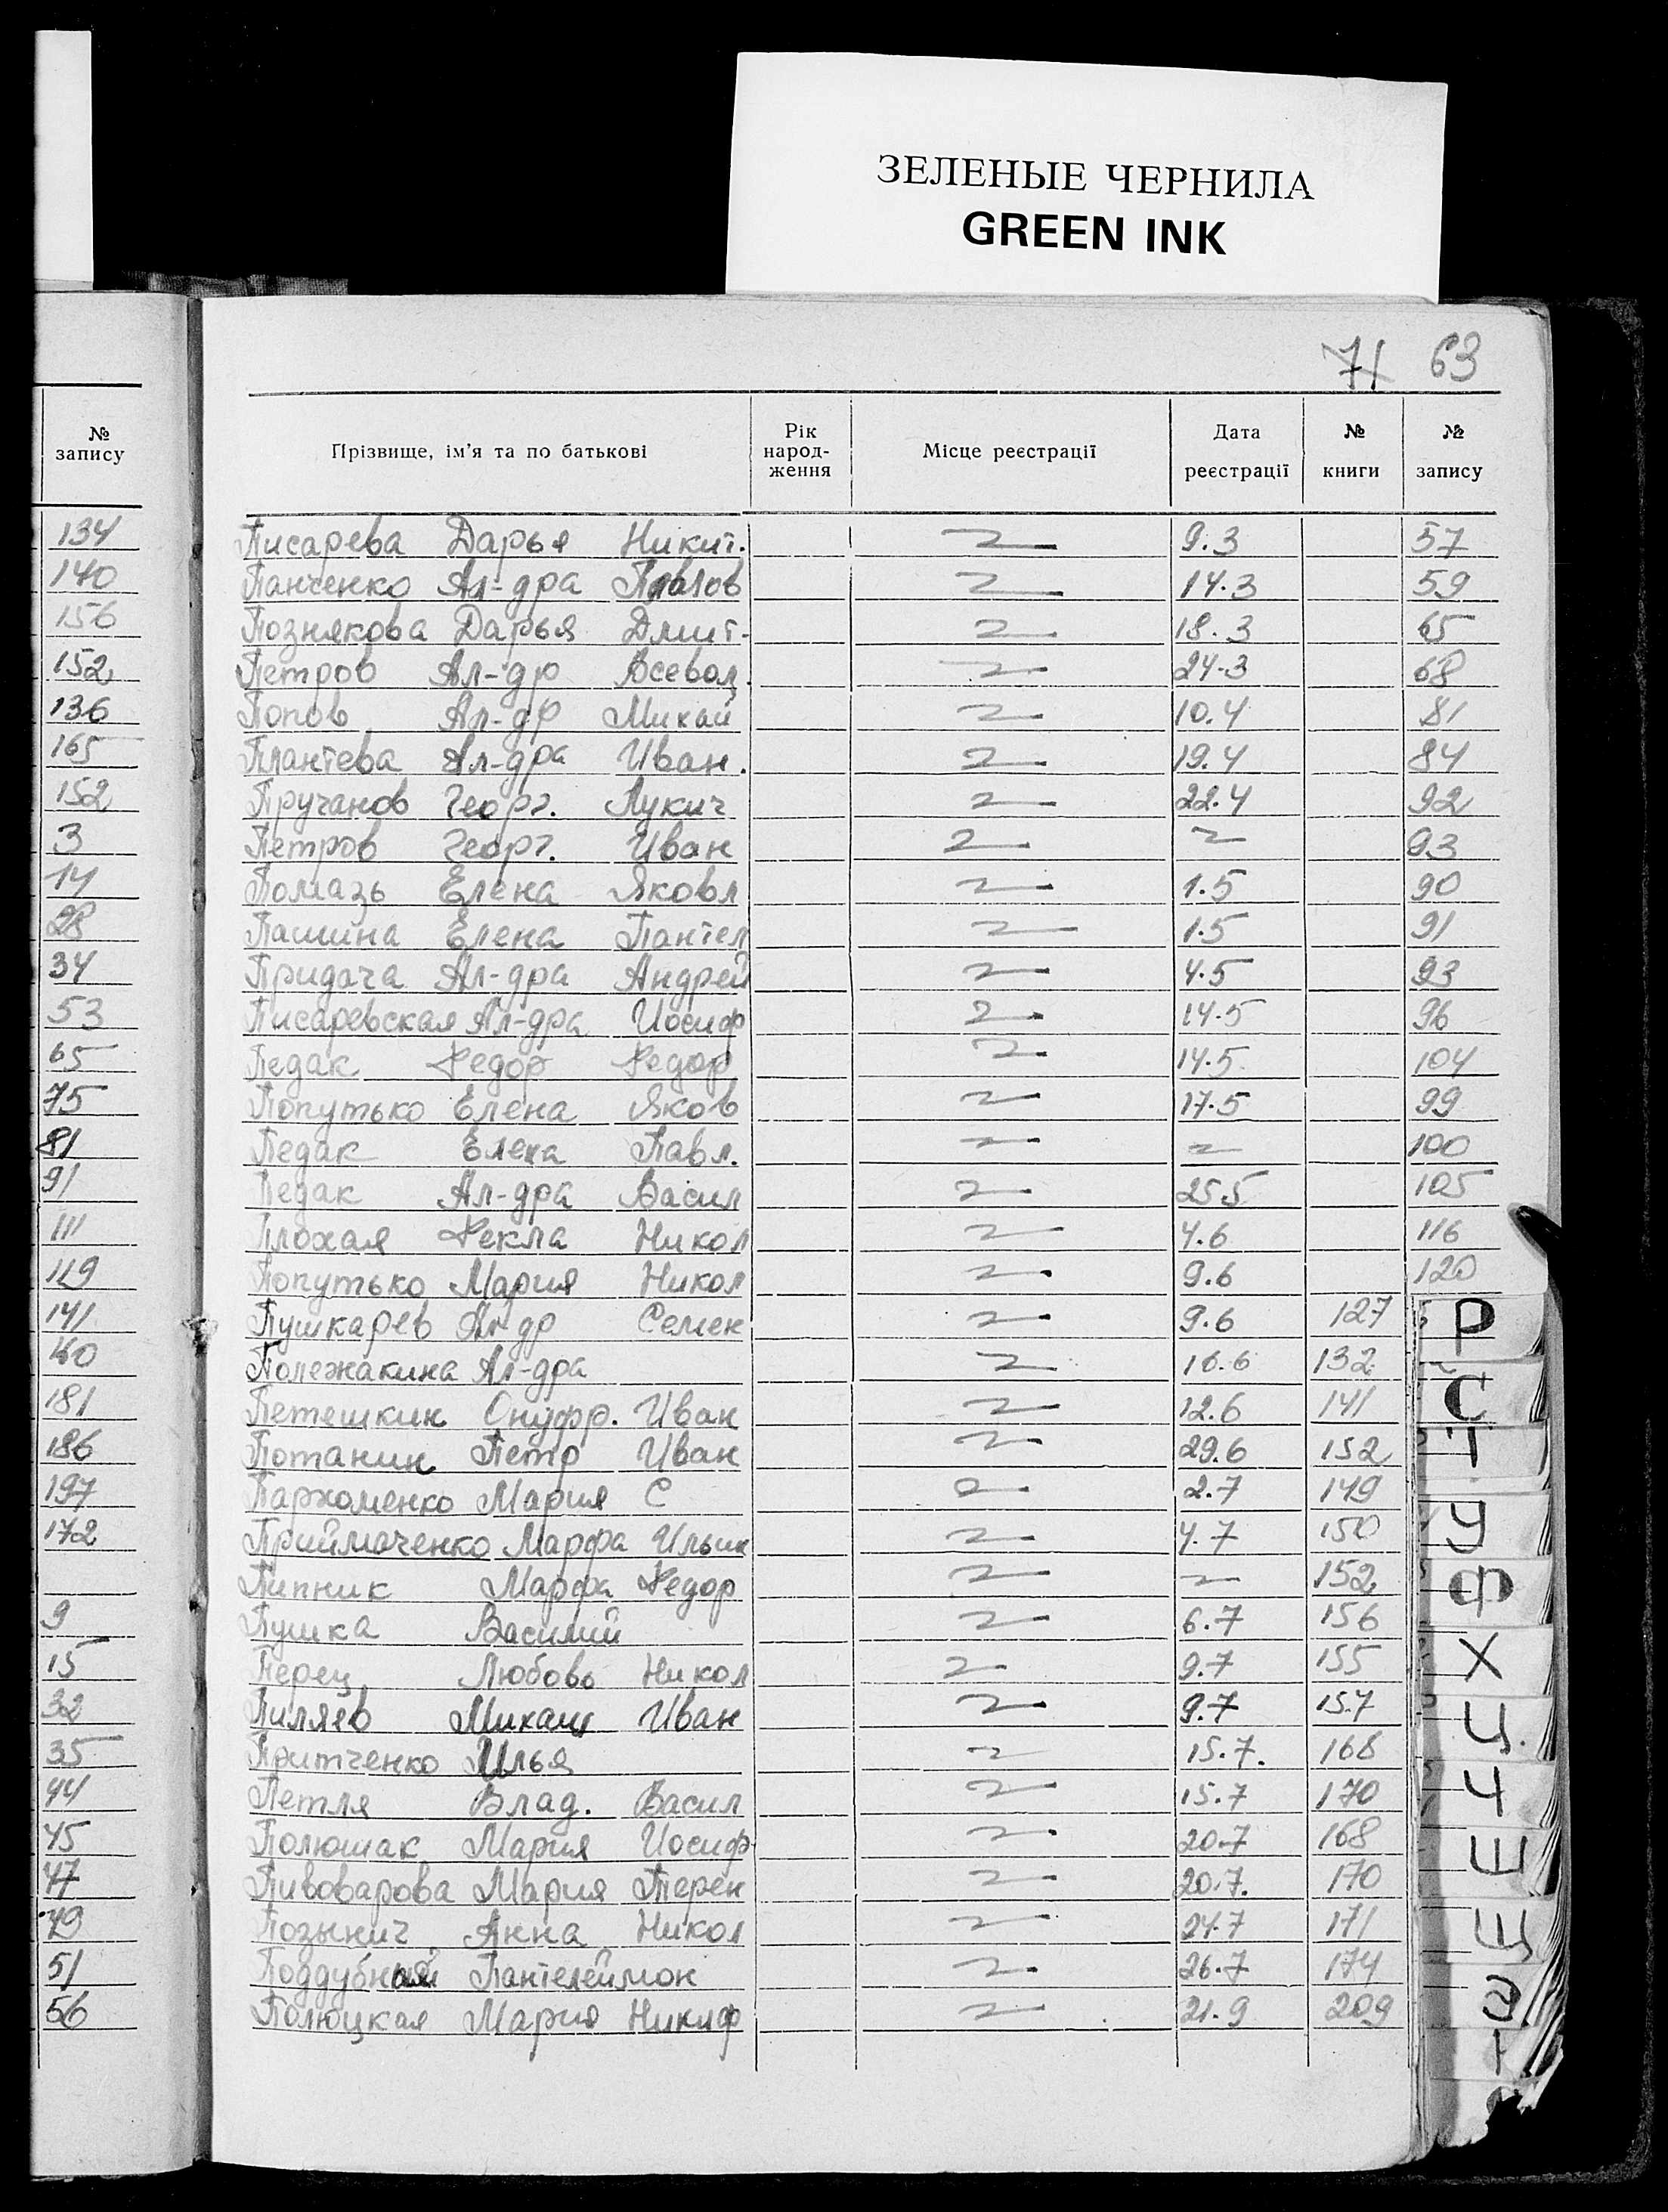 ЗЕЛЕНЫЕ ЧЕРНИЛА
GREEN INK
71 63
№ запису
134
140
156
152
136
165
152
3
14
28
34
53
65
75
81
91
111
119
141
160
181
186
197
172
9
15
32
35
44
45
47
49
51
56
Прізвище, ім'я та по батькові Рік народ-ження Місце реєстрації Дата реєстрації № книги № запису
Писарева Дарья Никит. 9.3 57
Панченко Ал-дра Павлов 14.3 59
Познякова Дарья Дмит- 18.3 65
Петров Ал-др Всевол. 24.3 68
Попов Ал-др Михай 10.4 81
Плантева Ал-дра Иван. 19.4 84
Пручанов Георг. Лукич 22.4 92
Петров Георг. Иван 93
Помазь Елена Яковл 1.5 90
Пашина Елена Пантел 1.5 91
Придача Ал-дра Андрей 4.5 93
Писаревская Ал-дра Иосиф 14.5 96
Педак Федор Федор 14.5 104
Попутько Елена Яков 17.5 99
Педак Елена Павл. 100
Педак Ал-дра Васил 25.5 105
Плохая Фекла Никол 4.6 116
Попутько Мария Никол 9.6 120
Пушкарев Ал-др Семен 9.6 127
Полежакина Ал-дра 16.6 132
Петешкин Онуфр. Иван 12.6 141
Потанин Петр Иван 29.6 152
Пархоменко Мария С 2.7 149
Приймаченко Марфа Ильин 4.7 150
Пипник Марфа Федор 152
Пушка Василий 6.7 156
Перец Любовь Никол 9.7 155
Пиляев Михаил Иван 9.7 157
Притченко Илья 15.7. 168
Петля Влад. Васил 15.7 170
Полюшак Мария Иосиф 20.7 168
Пивоварова Мария Терен 20.7. 170
Позынич Анна Никол 24.7 171
Поддубный Пантелеймон 26.7 174
Полюцкая Мария Никиф 21.9 209
Р
С
Т
У
Ф
Х
Ц
Ч
Ш
Щ